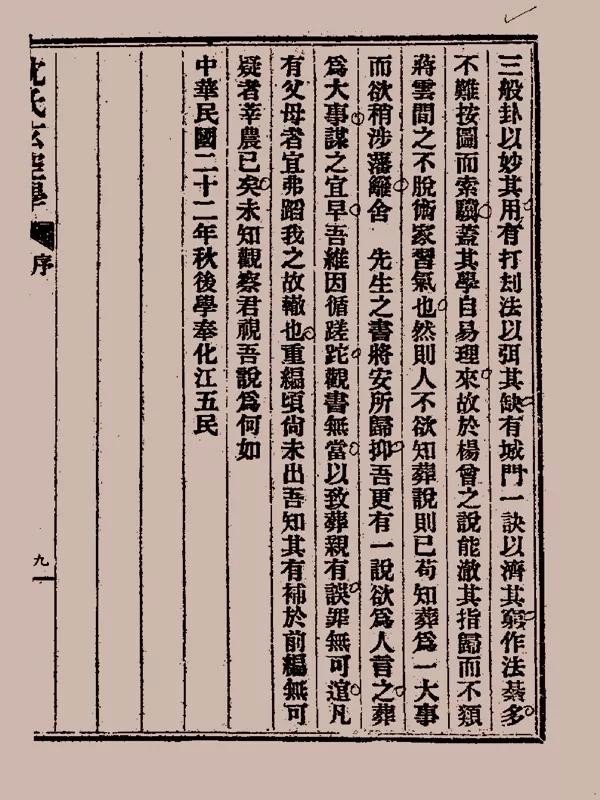 三般卦以妙其用有打刦法以弭其缺有城門一訣以濟其窮作法綦多
不難按圖而索驥蓋其學自易理來故於楊曾之說能澈其指歸而不類
蔣雲間之不脫術家習氣也然則人不欲知葬說則已苟知葬爲一大事
而欲稍涉藩籬舍 先生之書將安所歸抑吾更有一說欲爲人言之葬
爲大事謀之宜早吾維因循蹉跎觀書無當以致葬親有誤罪無可逭凡
有父母者宜弗蹈我之故轍也重編頃尙未出吾知其有補於前編無可
疑者莘農已矣未知觀察君視吾說爲何如
中華民國二十二年秋後學奉化江五民
沈氏玄空學
序
九